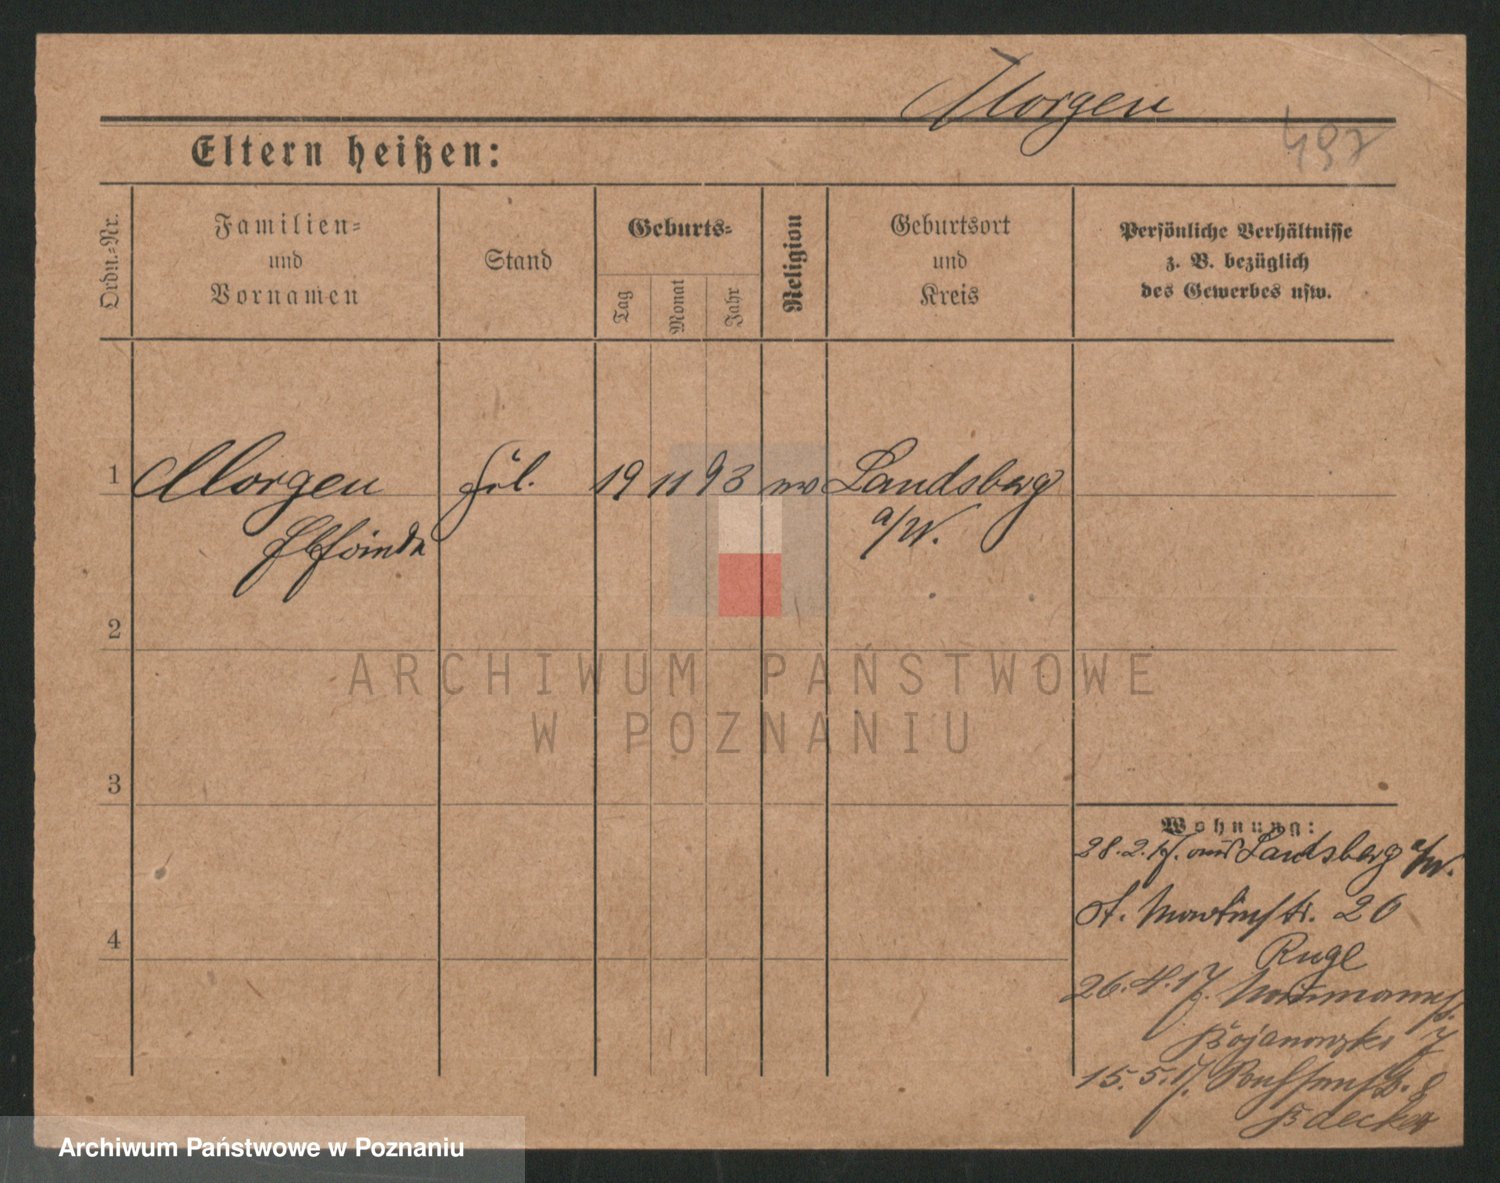 Morgen
497
Eltern heißen:
Ordn.-Nr.
Familien-
und
Vornamen
Stand
Geburts-
Tag
Monat
Jahr
Religion
Geburtsort
und
Kreis
Persönliche Verhältnisse
z. B. bezüglich
des Gewerbes usw.
1 Morgen Frl. 19 11 93 Landsberg
a/W.
2
3
4
Wohnung:
28.2.17. aus Landsberg a/W.
St. Martinstr. 26
Ruge
26.4.17.
Bojanowski 7
15.5.17. 8
ARCHIWUM PAŃSTWOWE
W POZNANIU
Archiwum Państwowe w Poznaniu